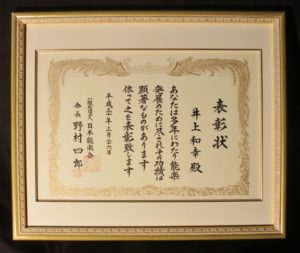 表彰状
井上和幸 殿
あなたは多年にわたり能楽
発展のために尽されその功績は
顕著なものがあります
依って之を表彰致します
平成三十年三月六日
一般社団法人 日本能楽会
会長 野村四郎